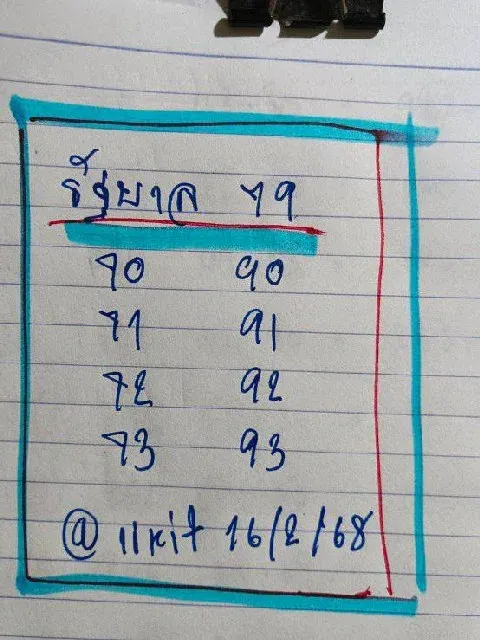 รัฐบาล 79
70 90
71 91
72 92
73 93
@ 16/2/68